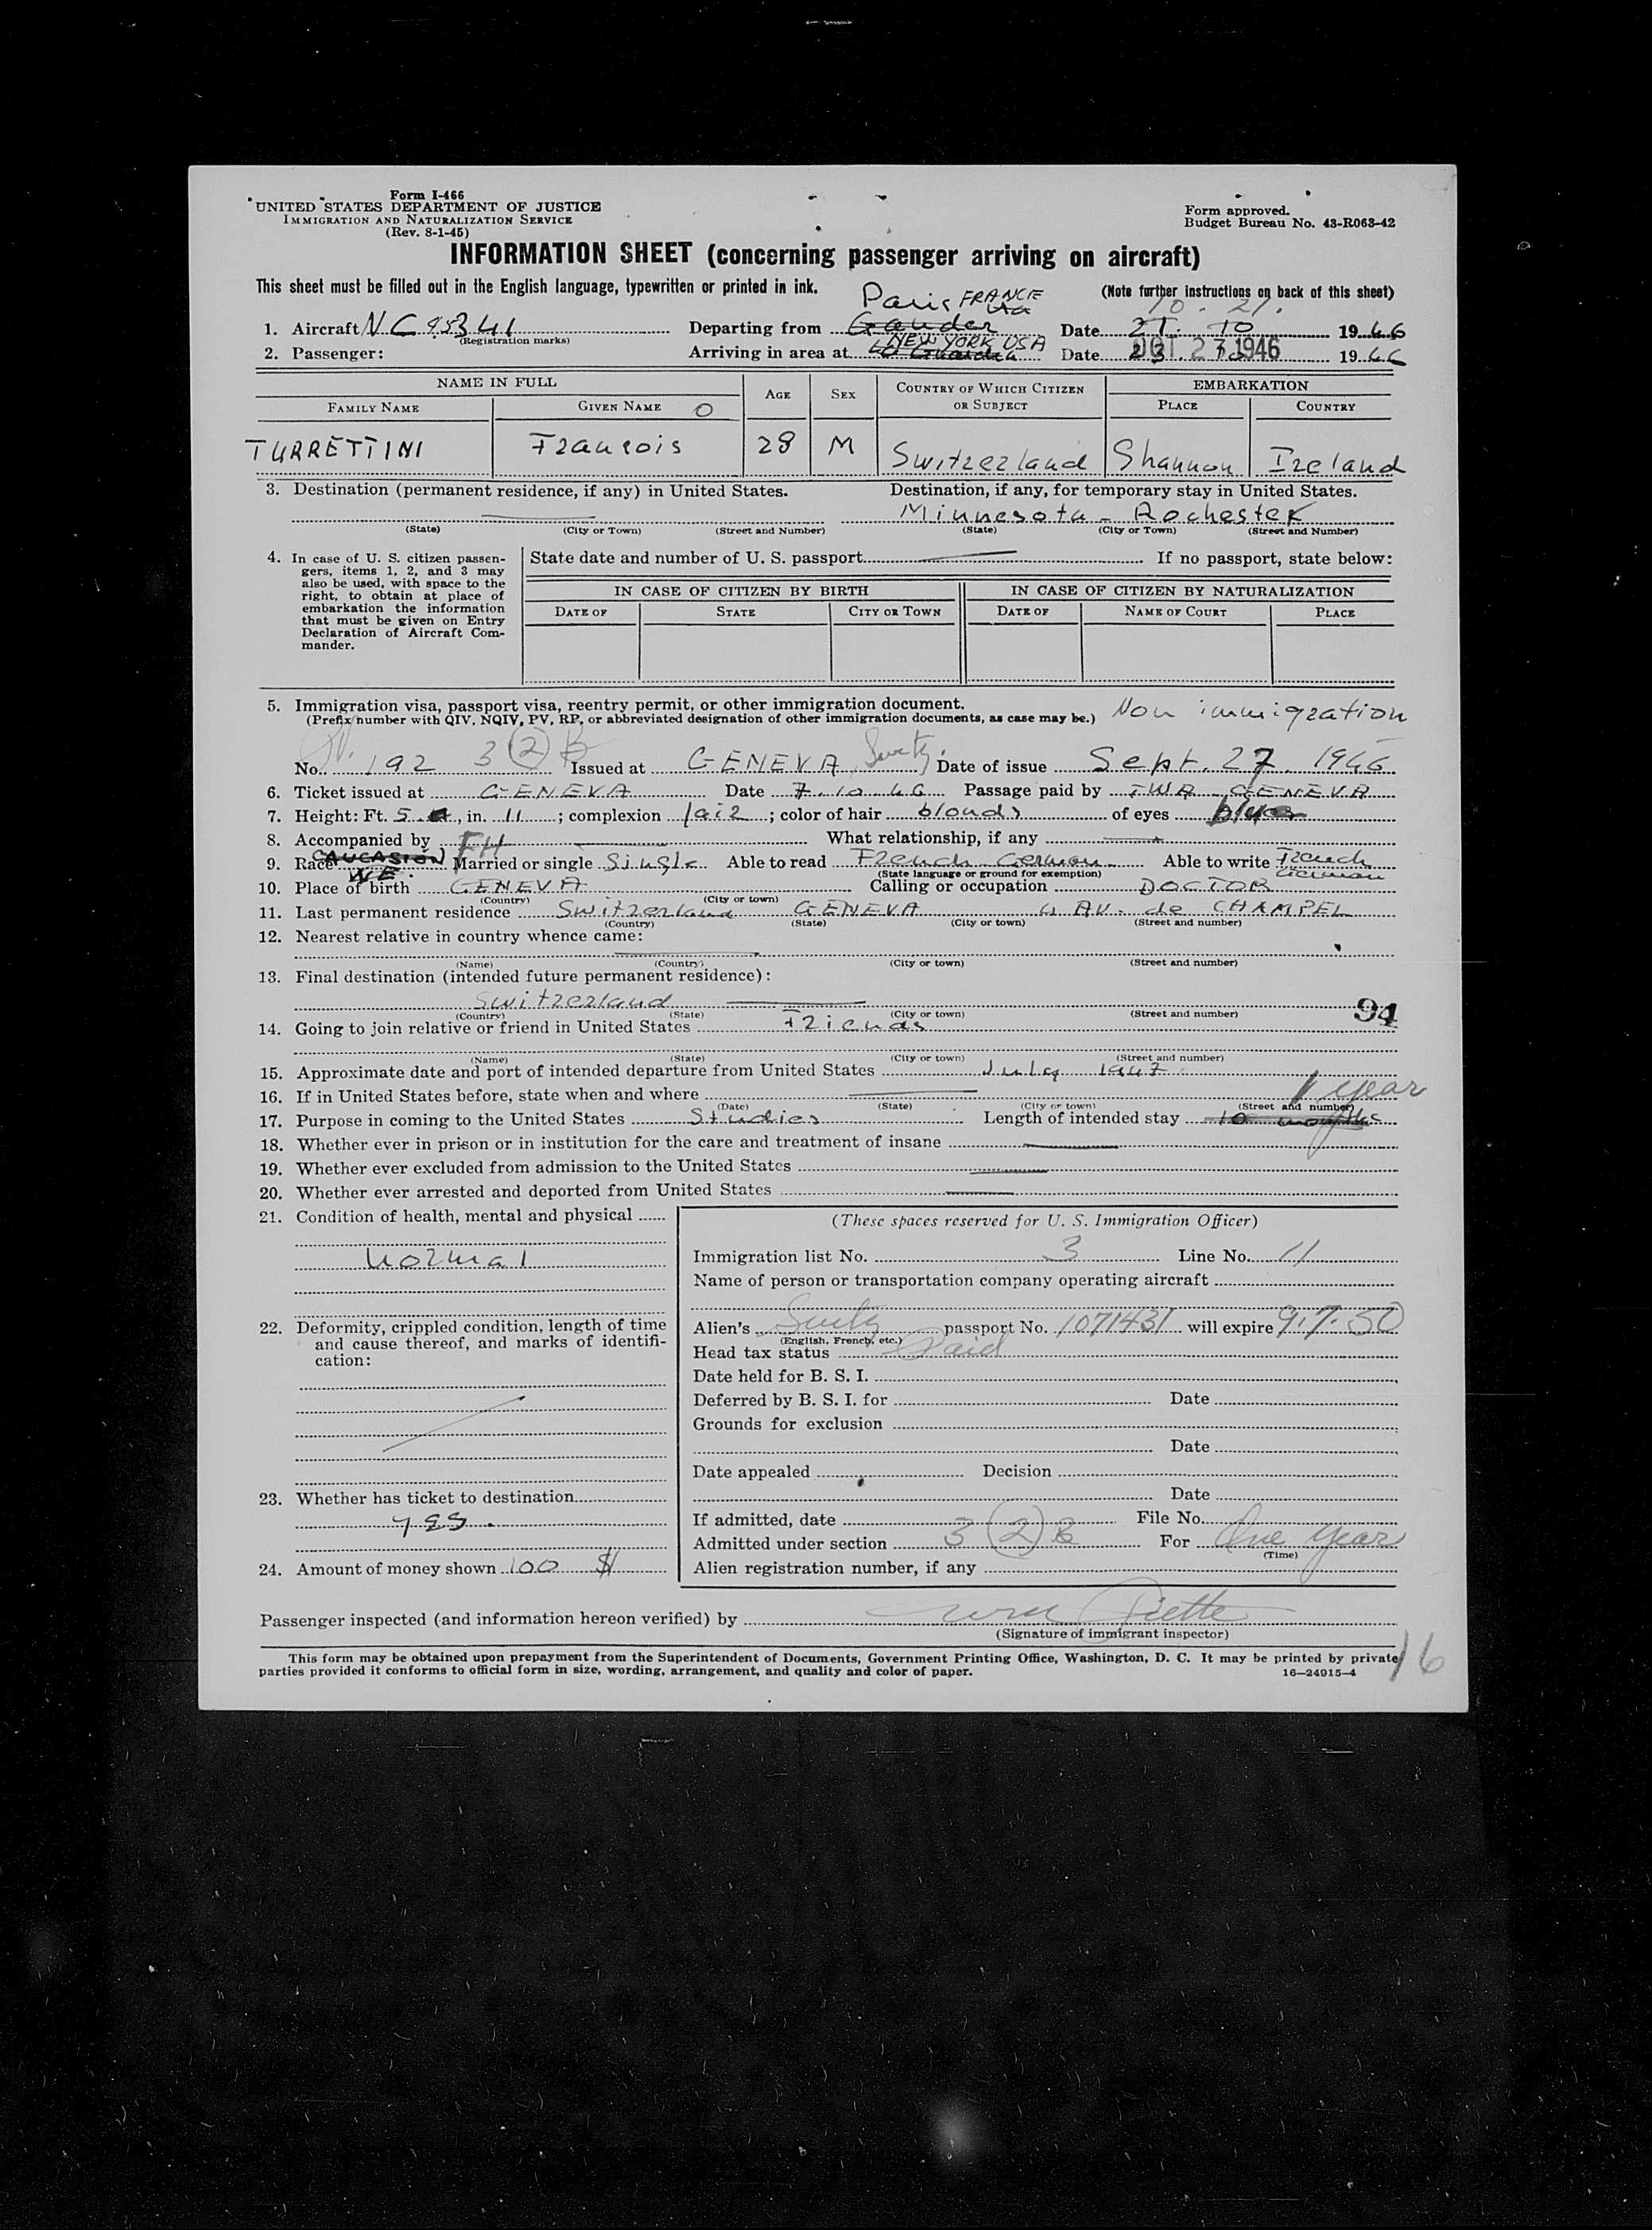 Form I-466
UNITED STATES DEPARTMENT OF JUSTICE
IMMIGRATION AND NATURALIZATION SERVICE
(Rev. 8-1-45)
Form approved.
Budget Bureau No. 43-R063-42
INFORMATION SHEET (concerning passenger arriving on aircraft)
This sheet must be filled out in the English language, typewritten or printed in ink.
(Note further instructions on back of this sheet)
Paris FRANCE
10 . 21.
1. Aircraft NC 95341 Departing from Gander Date 21. 10 1946
(Registration marks)
NEW YORK USA
2. Passenger: Arriving in area at Date OCT 23 1946 1946
NAME IN FULL AGE SEX COUNTRY OF WHICH CITIZEN OR SUBJECT EMBARKATION
FAMILY NAME GIVEN NAME PLACE COUNTRY
TURRETTINI Francois 28 M Switzerland Shannon Ireland
3. Destination (permanent residence, if any) in United States. Destination, if any, for temporary stay in United States.
Minnesota - Rochester
(State) (City or Town) (Street and Number) (State) (City or Town) (Street and Number)
4. In case of U. S. citizen passengers, items 1, 2, and 3 may also be used, with space to the right, to obtain at place of embarkation the information that must be given on Entry Declaration of Aircraft Commander.
State date and number of U. S. passport If no passport, state below:
IN CASE OF CITIZEN BY BIRTH IN CASE OF CITIZEN BY NATURALIZATION
DATE OF STATE CITY OR TOWN DATE OF NAME OF COURT PLACE
5. Immigration visa, passport visa, reentry permit, or other immigration document.
(Prefix number with QIV, NQIV, PV, RP, or abbreviated designation of other immigration documents, as case may be.) Non immigration
No. 192 3 (2) B Issued at GENEVA, Date of issue Sept. 27. 1946
6. Ticket issued at GENEVA Date 7. 10 46 Passage paid by TWA GENEVA
7. Height: Ft. 5, in. 11; complexion fair; color of hair blonds of eyes blue
8. Accompanied by What relationship, if any
FH
9. Race CAUCASION Married or single Single Able to read French German Able to write French German
(State language or ground for exemption)
10. Place of birth GENEVA Calling or occupation DOCTOR
(Country) (City or town)
11. Last permanent residence Switzerland GENEVA 4 AV. de CHAMPEL
(Country) (State) (City or town) (Street and number)
12. Nearest relative in country whence came:
(Name) (Country) (City or town) (Street and number)
13. Final destination (intended future permanent residence):
Switzerland
(Country) (State) (City or town) (Street and number)
94
14. Going to join relative or friend in United States Friends
(Name) (State) (City or town) (Street and number)
15. Approximate date and port of intended departure from United States July 1947
16. If in United States before, state when and where
(Date) (State) (City or town) (Street and number)
1 year
17. Purpose in coming to the United States Studies Length of intended stay 10 months
18. Whether ever in prison or in institution for the care and treatment of insane
19. Whether ever excluded from admission to the United States
20. Whether ever arrested and deported from United States
21. Condition of health, mental and physical
normal
22. Deformity, crippled condition, length of time and cause thereof, and marks of identification:
23. Whether has ticket to destination
yes.
24. Amount of money shown 100 $
(These spaces reserved for U. S. Immigration Officer)
Immigration list No. 3 Line No. 11
Name of person or transportation company operating aircraft
Alien's passport No. 1071431 will expire 9.7.50
(English, French, etc.)
Head tax status Paid
Date held for B. S. I.
Deferred by B. S. I. for Date
Grounds for exclusion
Date
Date appealed Decision
Date
If admitted, date File No.
Admitted under section 3 (2) B For One Year
(Time)
Alien registration number, if any
Passenger inspected (and information hereon verified) by
(Signature of immigrant inspector)
This form may be obtained upon prepayment from the Superintendent of Documents, Government Printing Office, Washington, D. C. It may be printed by private
parties provided it conforms to official form in size, wording, arrangement, and quality and color of paper.
16—24915-4
16